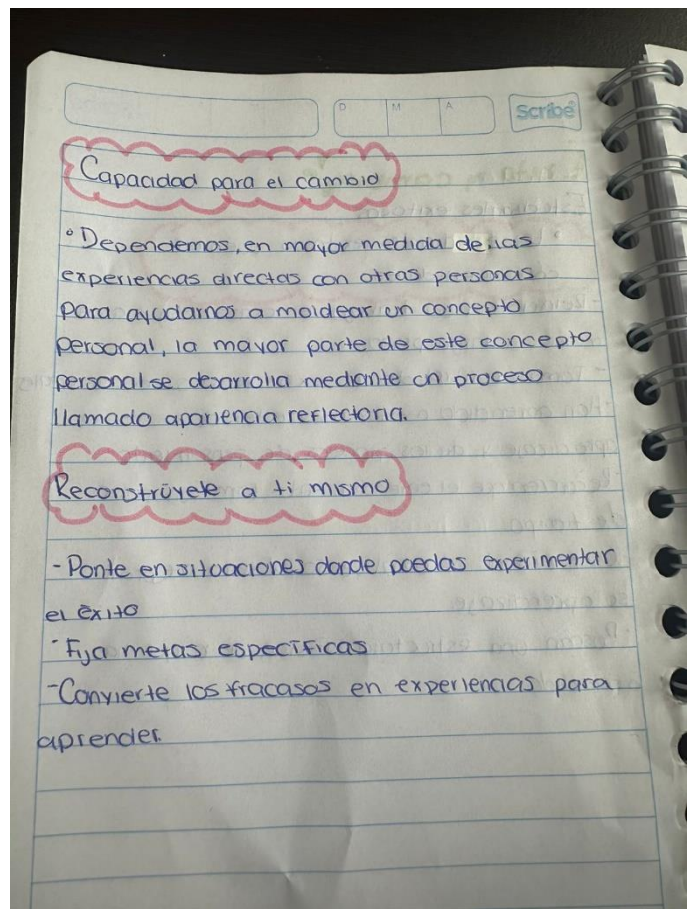 D M A
Scribe
Capacidad para el cambio
° Dependemos, en mayor medida de las
experiencias directas con otras personas
para ayudarnos a moldear un concepto
personal, la mayor parte de este concepto
personal se desarrolla mediante un proceso
llamado apariencia reflectoria.
Reconstrúyete a ti mismo
- Ponte en situaciones donde puedas experimentar
el éxito
- Fija metas específicas
- Convierte los fracasos en experiencias para
aprender.